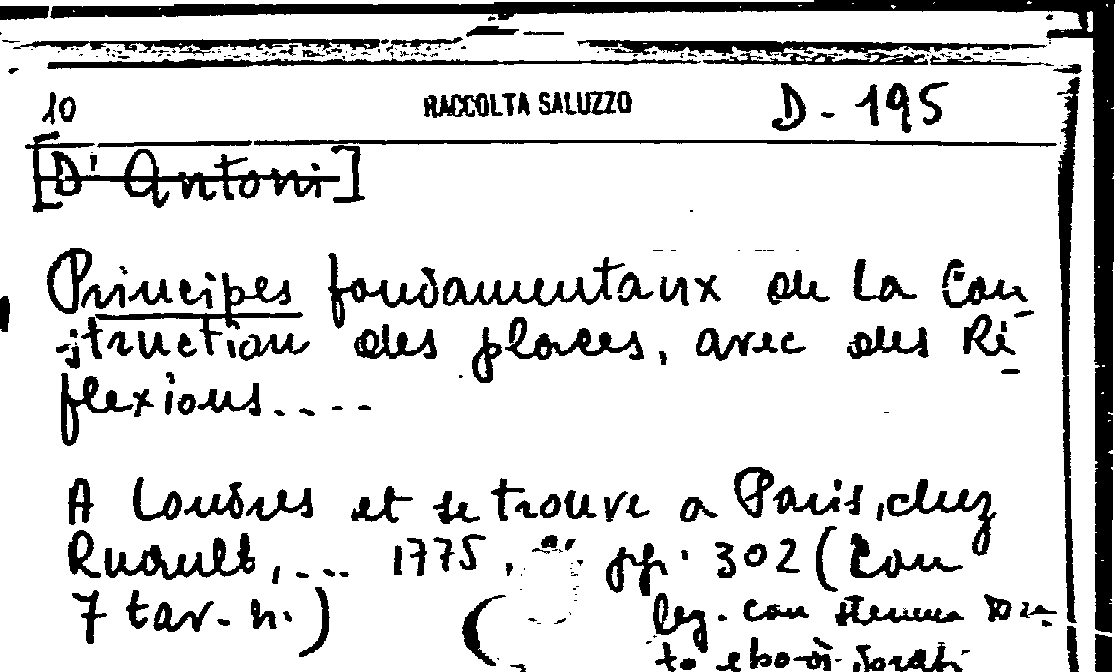 10 RACCOLTA SALUZZO D-195
[D'Antoni]
Principes fondamentaux de la Con
struction des places, avec des Ré-
flexions....
A Londres et se trouve a Paris, chez
Ruault,... 1775, pp. 302 (con
7 tav. n.) (leg. con stemma